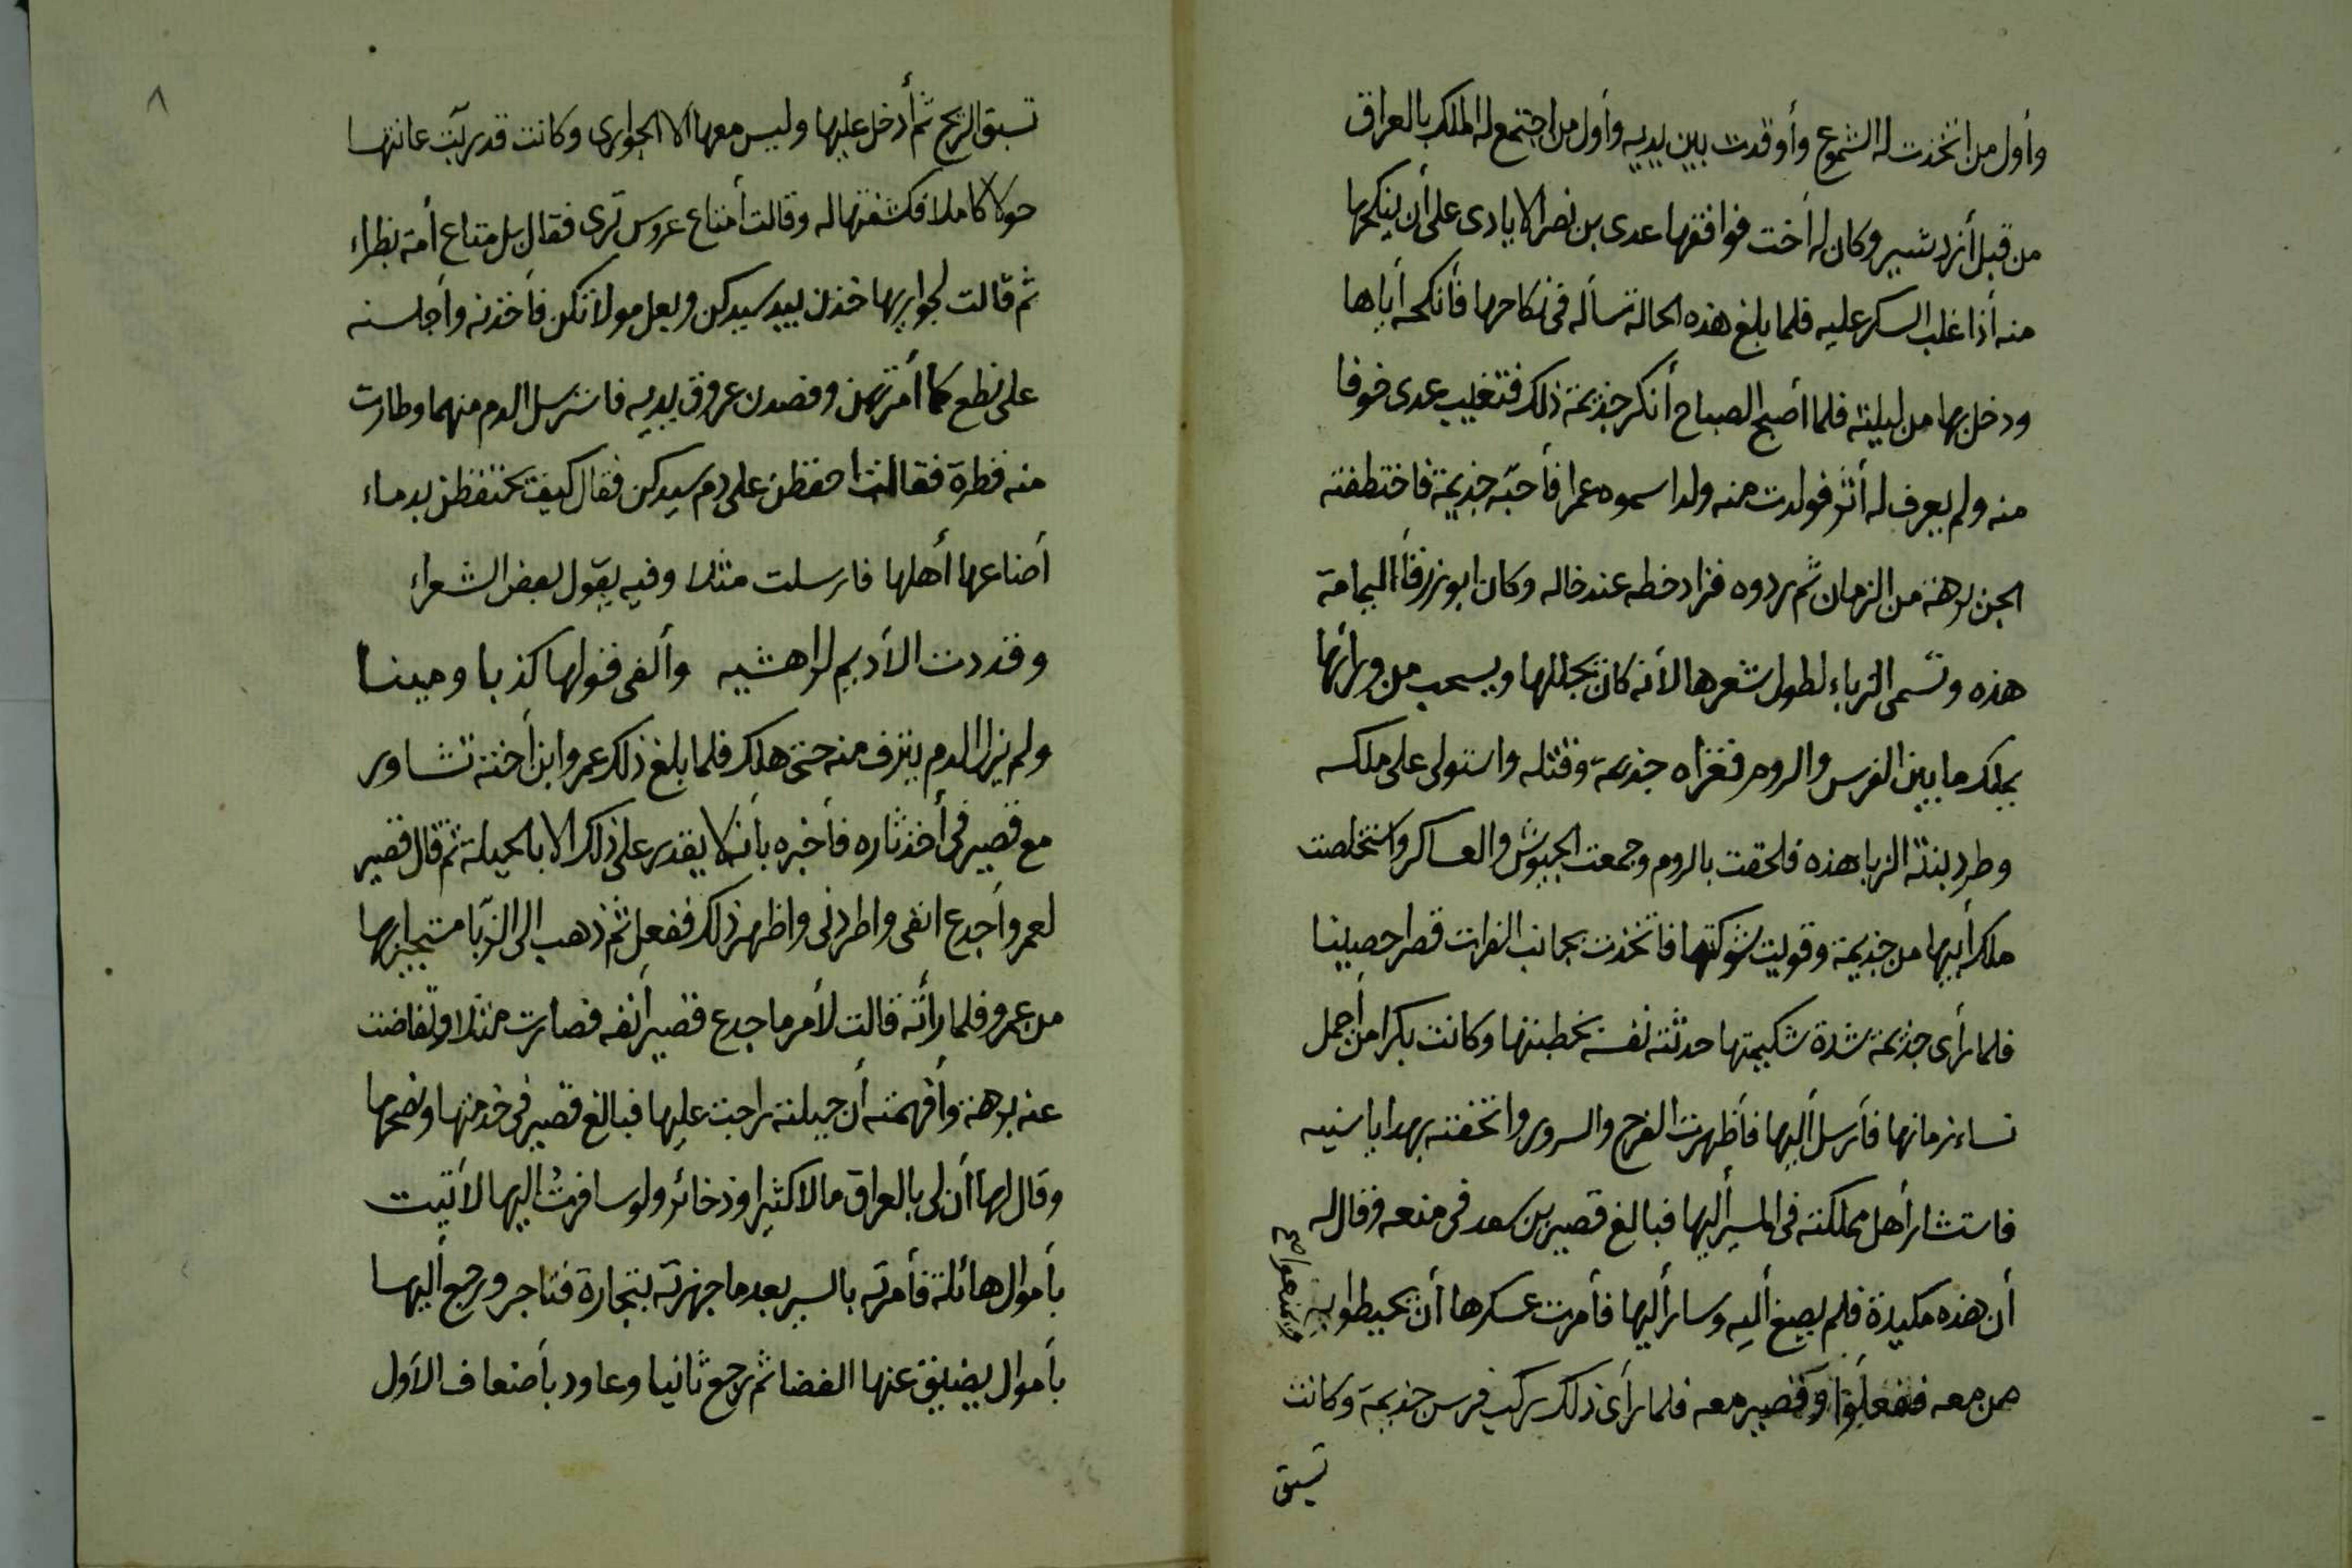 وأول من اتخذت له الشموع وأوقدت بين يديه وأول من اجتمع له الملك بالعراق
من قبل أزدشير وكان له أخت فوافقها عدى بن نصر الايادى على أن ينكحها
منه أذا غلب السكر عليه فلما بلغ هذه الحالة سأله فى نكاحها فأنكحه أياها
ودخل بها من ليلته فلما أصبح الصباح أنكر جذيمة ذلك فتغيب عدى خوفا
منه ولم يعرف له أثر فولدت منه ولدا سموه عمرا فأحبّه جذيمة فاختطفته
الجن برهة من الزمان ثم ردوه فزاد حظه عند خاله وكان ابو زرقأ اليمامة
هذه وتسمى الزباء لطول شعرها لأنه كان يجللها ويسحب من ورائها
يملك ما بين الفرس والروم فغزاه جذيمة وقتله واستولى على ملكه
وطرد بنته الزبا هذه فلحقت بالروم وجمعت الجيوش والعساكر واستخلصت
ملك أبيها من جذيمة وقويت شوكتها فاتخذت بجانب الفرات قصرا حصينا
فلما رأى جذيمة شدة شكيمتها حدثته نفسه بخطبتها وكانت بكرا من أجمل
نساء زمانها فأرسل أليها فأظهرت الفرح والسرور واتحفته بهدايا سنيه
فاستشار أهل مملكته فى المسير أليها فبالغ قصير بن سعد فى منعه وقال له
أن هذه مكيدة فلم يصغ أليه وسار أليها فأمرت عسكرها أن يحيطوا به
ممن معه ففعلوا وقصير معه فلما رأى ذلك ركب فرس جذيمة وكانت
تسبق
٨
تسبق الريح ثم أدخل عليها وليس معها الا الجوارى وكانت قد ربّت عانتها
حولا كاملا فكشفتها له وقالت أمتاع عروس ترى فقال بل متاع أمة بظراء
ثم قالت لجواريها خذن بيد سيدكن وبعل مولاتكن فأخذنه وأجلسنه
على نطع كما أمرتهن وفصدن عروق يديه فاسترسل الدم منهما وطارت
منه قطرة فقالت احفظن على دم سيدكن فقال كيف تحتفظن بدماء
أضاعها أهلها فارسلت مثلا وفيه يقول بعض الشعراء
وقددت الأديم لراهشيه وألفى قولها كذبا ومينا
ولم يزل الدم ينزف منه حتى هلك فلما بلغ ذلك عمرو ابن أخته تشاور
مع قصير فى أخذ ثاره فأخبره بأنه لا يقدر على ذلك الا بالحيلة ثم قال قصير
لعمرو أجدع انفى واطردنى واظهر ذلك ففعل ثم ذهب الى الزبّا مستجيرا بها
من عمرو فلما رأته قالت لأمر ما جدع قصير أنفه فصارت مثلا وتغاضت
عنه برهة وأفهمته أن حيلته راجت عليها فبالغ قصير فى خدمتها ونصحها
وقال لها أن لى بالعراق مالا كثيرا وذخائر ولو سافرت اليها لأتيت
بأموال هائلة فأمرته بالسير بعد ما جهزته بتجارة فتاجر ورجع أليها
بأموال يضيق عنها الفضا ثم رجع ثانيا وعاود بأضعاف الأول